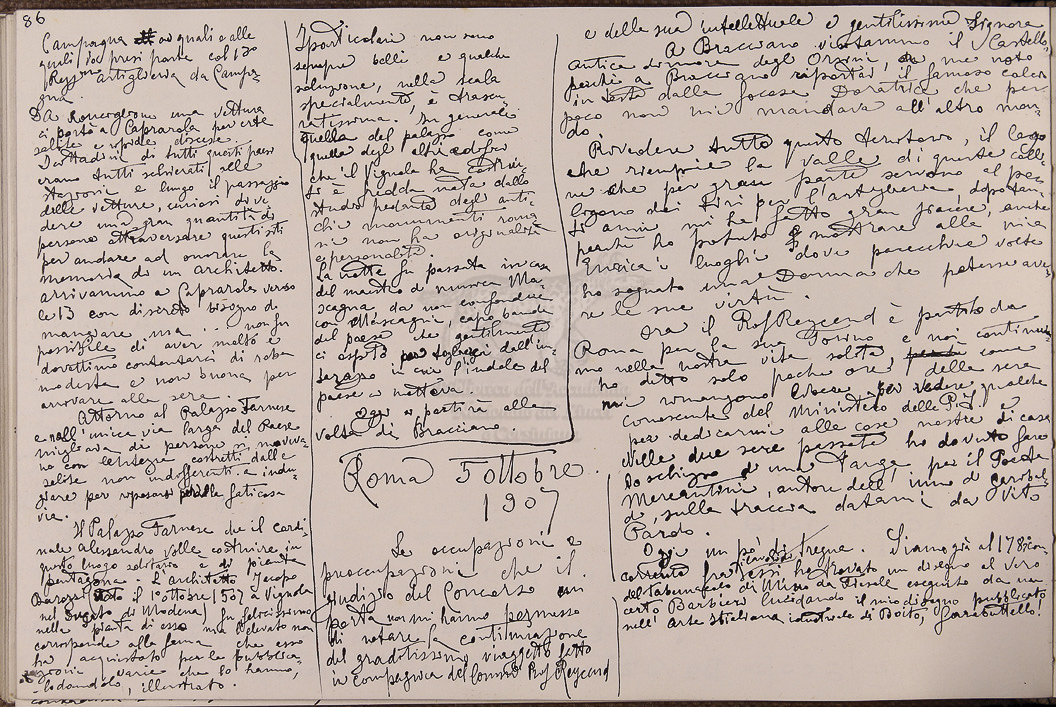 86
Campagna ai quali e alle
quali io presi parte col 13º
Regg.to artiglieria da Campa-
gna.
Da Ronciglione una vettura
ci portò a Caprarola per erte
salite e ripide discese.
I contadini di tutti questi paesi
erano tutti schierati alle
stazioni e lungo il passaggio
delle vetture, curiosi di ve-
dere una gran quantità di
persone attraversare questi siti
per andare ad onorare la
memoria di un architetto.
Arrivammo a Caprarola verso
le 13 con discreto bisogno di
mangiare ma non fu
possibile di aver molto e
dovettimo contentarci di roba
modesta e non buona per
arrivare alla sera.
Attorno al Palazzo Farnese
e nell'unica via larga del Paese
migliaia di persone si moveva-
no con lentezza costretti dalle
salite non indifferenti e indu-
giare per riposarsi della faticosa
via.
Il Palazzo Farnese che il cardi-
nale Alessandro volle costruire in
questo luogo solitario è di pianta
pentagona. L'architetto Jacopo
Barozzi (nato il 1º ottobre 1507 a Vignola
nel Ducato di Modena) fu felicissimo
nella pianta di esso ma l'elevato non
corrisponde alla fama che esso
ha acquistato per le pubblica-
zioni varie che lo hanno,
lodandolo, illustrato.
I particolari non sono
sempre belli e qualche
soluzione, nella scala
specialmente, è trascu-
ratissima. In generale
quella del palazzo come
quella degli altri edifizi
che il Vignola ha costrui-
ti è fredda nata dallo
studio pedante degli anti-
chi monumenti roma-
ni e non ha originalità
e personalità.
La notte fu passata in casa
del maestro di musica Ma-
scagna da non confondere
con Mascagni capo banda
del paese che gentilmente
ci ospitò per toglierci dall'im-
barazzo in cui l'indole del
paese ci metteva.
Oggi si partirà alla
volta di Bracciano.
Roma 5 ottobre
1907
Le occupazioni e
preoccupazioni che il
giudizio del Concorso mi
porta non mi hanno permesso
di notare la continuazione
del graditissimo viaggetto fatto
in compagnia del Comm. Prof. Reycend
e della sua intellettuale e gentilissima Signora.
A Bracciano visitammo il Castello,
antica dimora degli Orsini, a me noto
perchè a Bracciano riportai il famoso calcio
in testa dalla focosa Doratrice che per
poco non mi mandava all'altro mon-
do.
Rivedere tutto questo territorio, il lago
che riempie la valle di queste colli-
ne che per gran parte servono al poli-
gono dei tiri per l'artiglieria dopo tan-
ti anni mi ha fatto gran piacere, anche
perchè ho potuto mostrare alla mia
amica i luoghi dove parecchie volte
ho sognato una Donna che potesse ave-
re le sue virtù.
Ora il Prof Reycend è partito da
Roma per la sua Torino e noi continuia-
mo nella nostra vita solita, come
ho detto solo poche ore della sera
mi rimangono libere per vedere qualche
conoscente del Ministero della P.I. e
per dedicarmi alle cose nostre di casa
Nelle due sere passate ho dovuto fare
lo schizzo di una Targa per il Poeta
Mercantini, autore dell'inno di Garibal-
di, sulla traccia datami da Vito
Pardo.
Oggi un pò di tregua. Siamo già al 178º con-
corrente
del Tabernacolo di Mino da Fiesole eseguito da un
certo Barbieri lucidando il mio disegno pubblicato
nell'Arte italiana industriale di Boito, Garabattello!